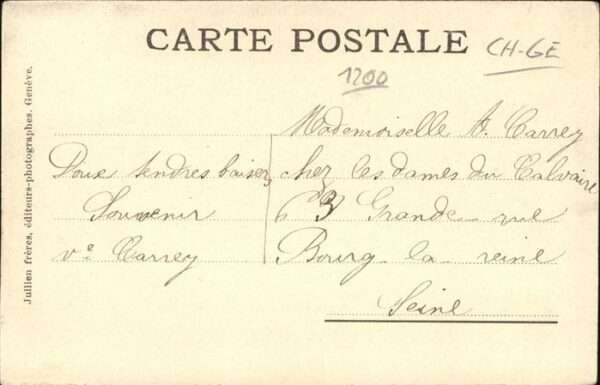 CARTE POSTALE
CH-GE
1200
Jullien frères, éditeurs-photographes, Genève.
Doux tendres baisers
Souvenir
vᵉ Carrey
Mademoiselle A. Carrey
chez les dames du Calvaire
63 Grande rue
Bourg-la-reine
Seine